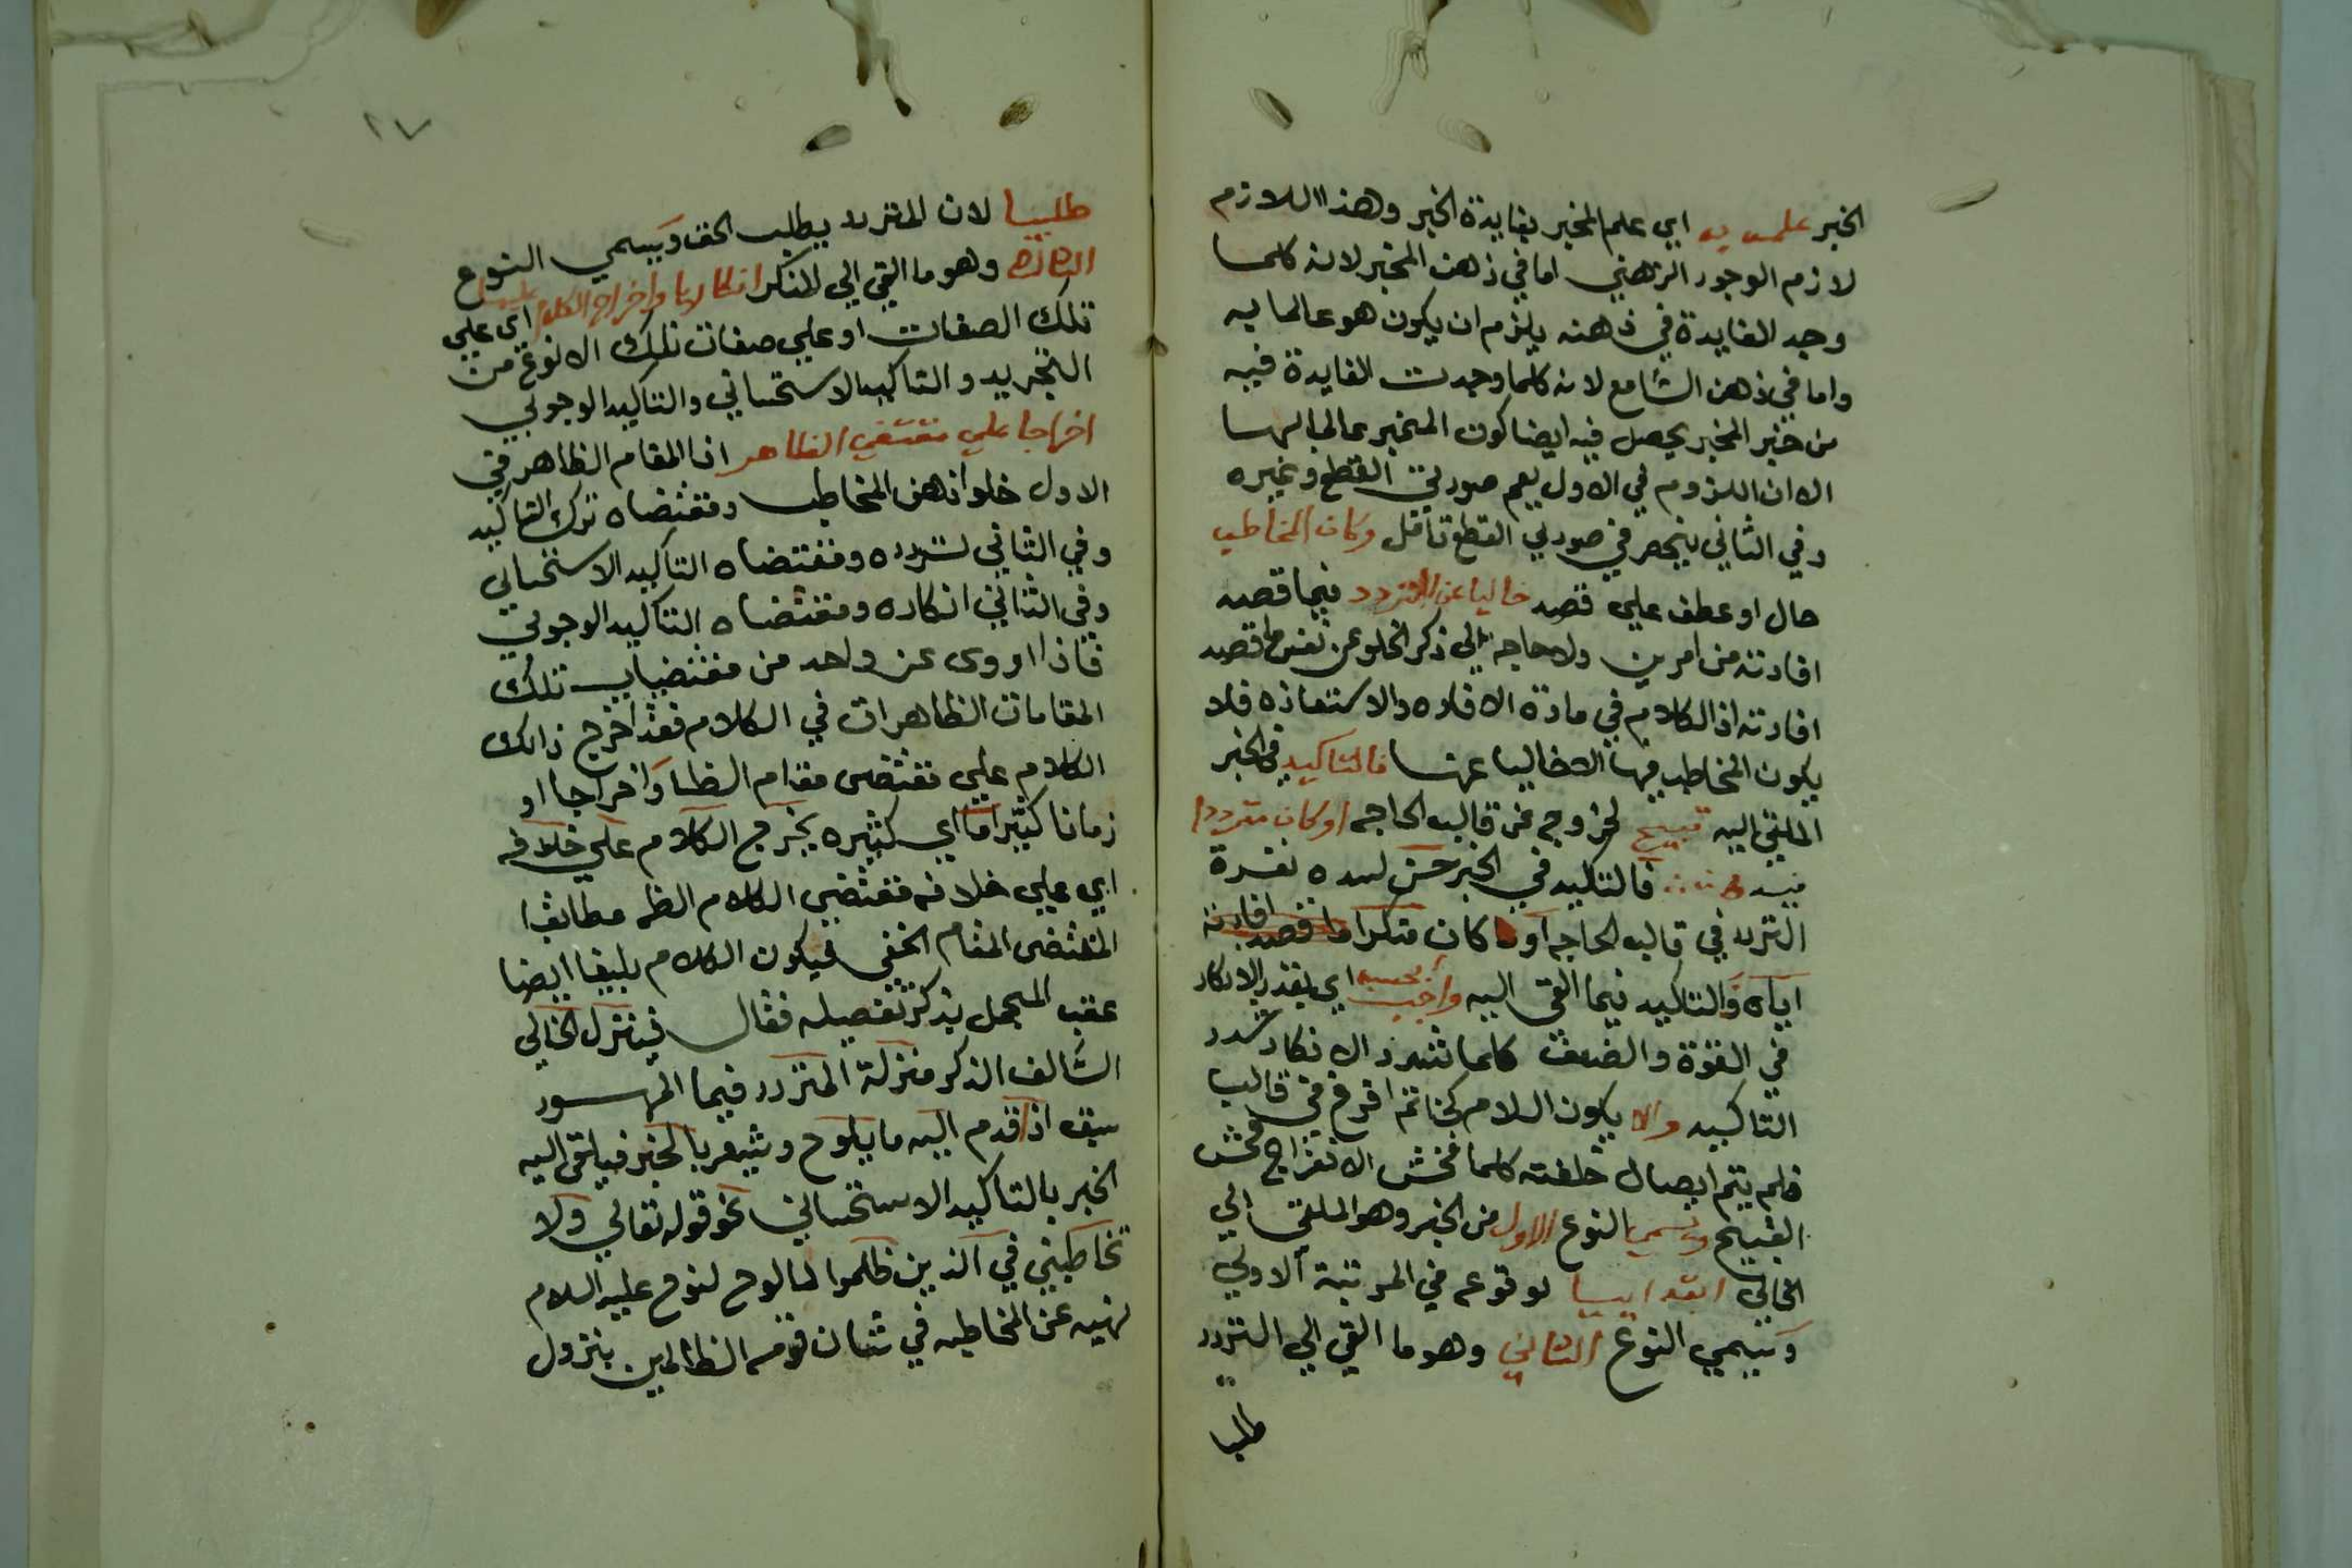 الخبر علمه به اي علم المخبر بفايدة الخبر وهذا اللازم
لازم الوجود الذهني اما في ذهن المخبر لانه كلما
وجد الفايدة في ذهنه يلزم ان يكون هو عالما به
واما في ذهن السامع لانه كلما وجدت الفايدة فيه
من خبر المخبر يحصل فيه ايضا كون المخبر عالما بها
الا ان اللزوم في الاول يعم صورتي القطع وغيره
وفي الثاني ينحصر في صورتي القطع تأمل وكان المخاطب
حال او عطف علي قصد خاليا عن التردد فيما قصد
افادته من امرين ولا حاجة الي ذكر الخلو عن نفس ما قصد
افادته اذ الكلام في مادة الافاده والاستفاده فلا
يكون المخاطب فيها الا خاليا عنها فالتاكيد في الخبر
الملقي اليه قبيح لخروجه عن قالب الحاجه او كان مترددا
فيه فالتاكيد في الخبر حسن لسده نقرة
التردد في قالب الحاجه او كان منكرا ما قصد افادته
اياه والتاكيد فيما القي اليه واجب بحسبه اي بقدر الانكار
في القوة والضعف كلما شدد الانكار شدد
التاكيد والا يكون الكلام كخاتم افرغ في قالب
فلم يتم ايصال حلقته كلما فحش الانفراج فحش
القبيح ويسمي النوع الاول من الخبر وهو الملقي الي
الخالي ابتدائيا لوقوعه في المرتبة الاولي
ويسمي النوع الثاني وهو ما القي الي التردد
طلبيا
٢٧
طلبيا لان المتردد يطلب الحق ويسمي النوع
الثالث وهو ما القي الي المنكر انكاريا واخراج الكلام عليها اي علي
تلك الصفات او علي صفات تلك الانوع من
التجريد والتاكيد الاستحساني والتاكيد الوجوبي
اخراجا علي مقتضي الظاهر اذ المقام الظاهر في
الاول خلو ذهن المخاطب ومقتضاه ترك التاكيد
وفي الثاني تردده ومقتضاه التاكيد الاستحساني
وفي الثاني انكاره ومقتضاه التاكيد الوجوبي
فاذا اروى عن واحد من مقتضيات تلك
المقامات الظاهرات في الكلام فقد اخرج ذلك
الكلام علي مقتضى مقام الظا واخراجا او
زمانا كثيرا ما اي كثيره يخرج الكلام علي خلافه
اي علي خلافه مقتضي الكلام الظـ مطابقا
المقتضى المقام الخفي فيكون الكلام بليغا ايضا
عقب المجمل بذكر تفصيله فقال فينزل الخالي
السالف الذكر منزلة المتردد فيما المهـسور
سيق اذا قدم اليه ما يلوح ويشعر بالخبر فيلقي اليه
الخبر بالتاكيد الاستحساني نحو قوله تعالي ولا
تخاطبني في الذين ظلموا لما لوح لنوح عليه السلام
نهيه عن المخاطبه في شان قومه الظالمين بنزول